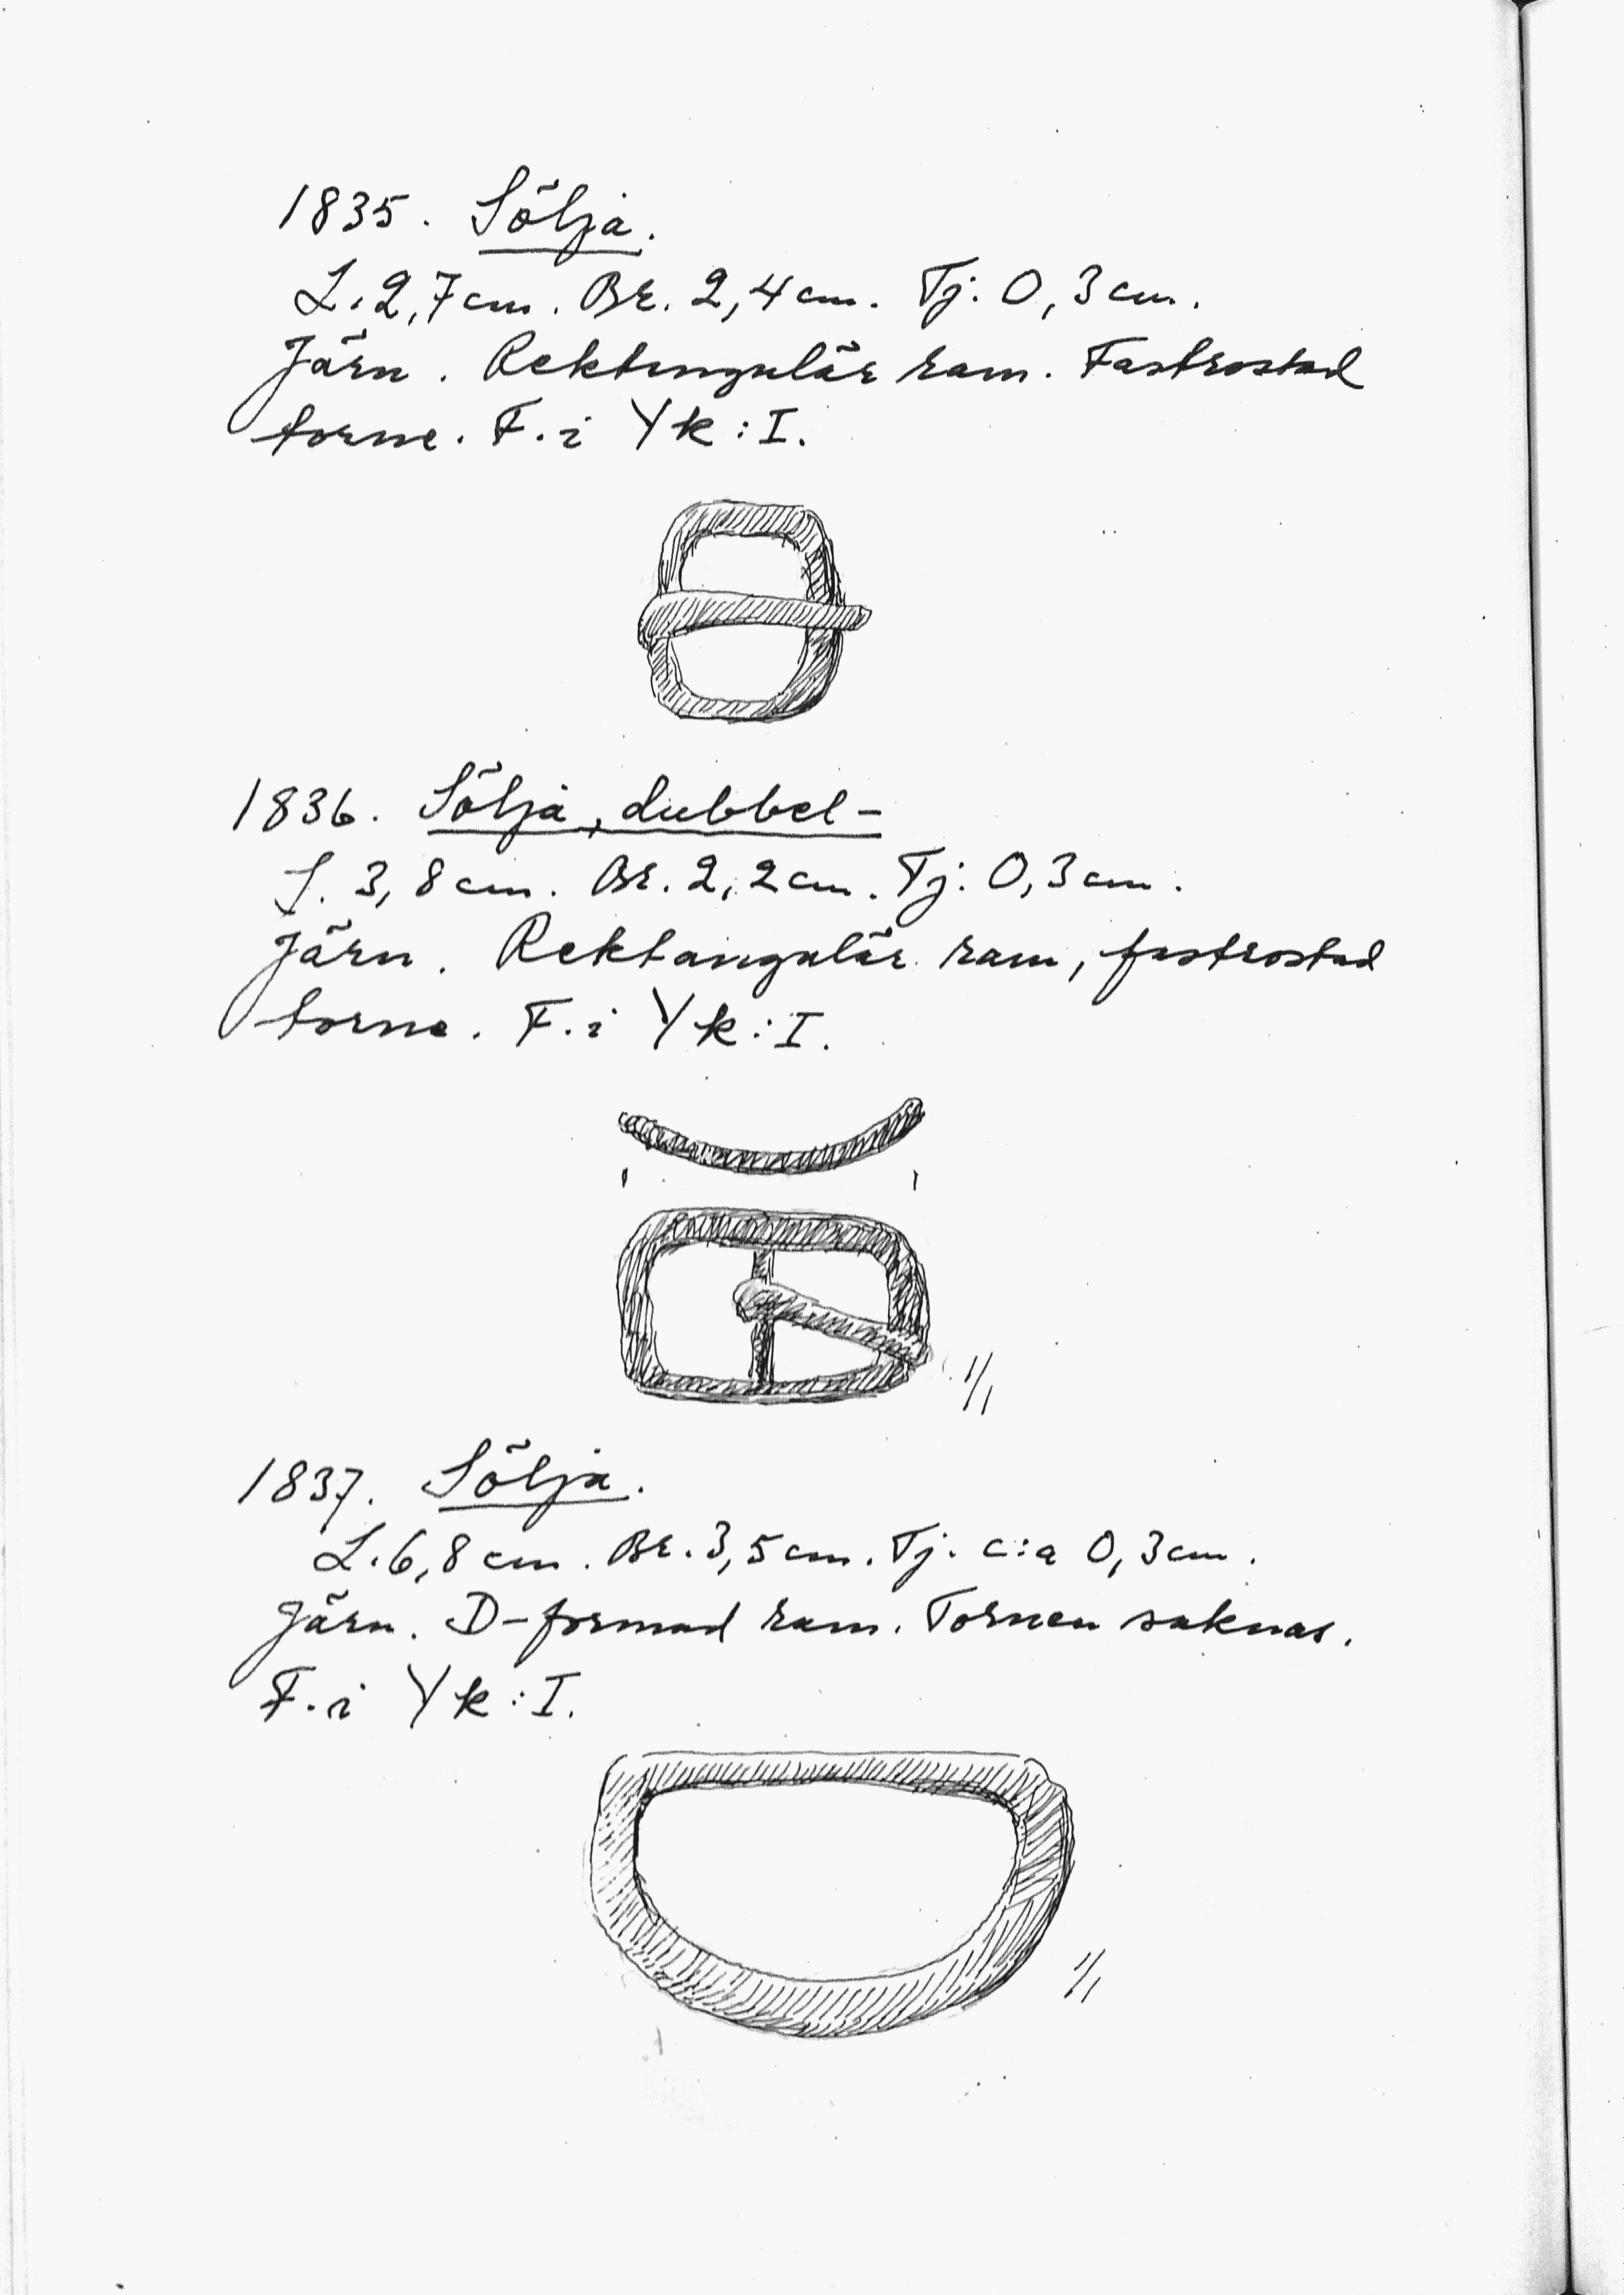 1835. Sölja.
L. 2,7 cm. Br. 2,4 cm. Tj. 0,3 cm.
Järn. Rektangulär ram. Fastrostad
torne. F. i Yk:I.
1836. Sölja, dubbel-
L. 3,8 cm. Br. 2,2 cm. Tj. 0,3 cm.
Järn. Rektangulär ram, fastrostad
torne. F. i Yk:I.
1/1
1837. Sölja.
L. 6,8 cm. Br. 3,5 cm. Tj. c:a 0,3 cm.
Järn. D-formad ram. Tornen saknas.
F. i Yk:I.
1/1